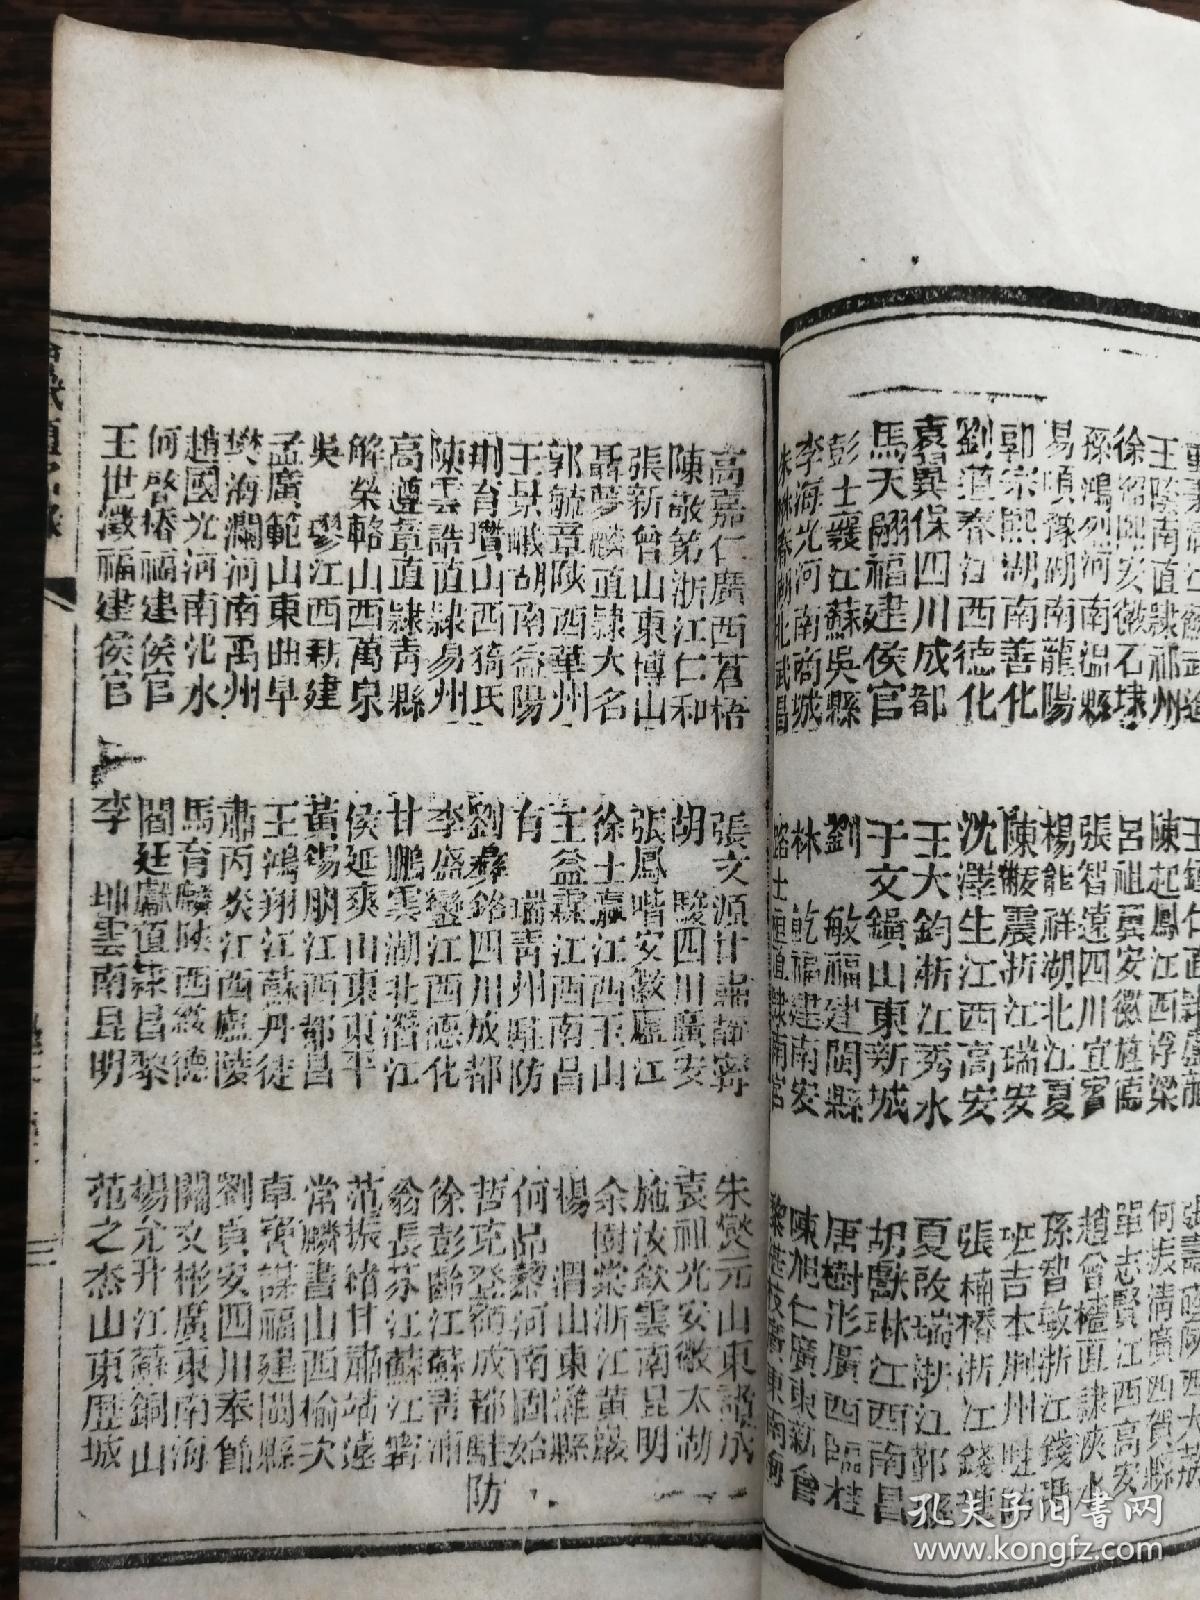 王蔭南直隸祁州
徐紹熙安徽石埭
孫鴻烈河南温縣
易順豫湖南龍陽
郭宗熙湖南善化
劉道春江西德化
袁翼保四川成都
馬天翮福建侯官
彭士襄江蘇吳縣
李海光河南商城
陳起鳳江西浮梁
呂祖翼安徽旌德
張智遠四川宜賓
楊能祥湖北江夏
陳黻震浙江瑞安
沈澤生江西高安
王大鈞浙江秀水
于文鎮山東新城
劉敏福建閩縣
林乾福建南安
何振清廣西賀縣
單志賢江西高安
趙曾檣直隸淶水
孫智敏浙江錢塘
班吉本荆州駐防
張楠椿浙江錢塘
夏啟瑞浙江鄞縣
胡獻琳江西南昌
唐樹彤廣西臨桂
陳旭仁廣東新會
高嘉仁廣西蒼梧
陳敬第浙江仁和
張新曾山東博山
聶夢麟直隸大名
郭毓章陝西華州
王景峨湖南益陽
荆育瓚山西猗氏
陳雲誥直隸易州
高遵章直隸青縣
解榮輅山西萬泉
吳璆江西新建
孟廣範山東曲阜
樊海瀾河南禹州
趙國光河南汜水
何啓椿福建侯官
王世澂福建侯官
張文源甘肅靜寧
胡駿四川廣安
張鳳喈安徽廬江
徐士瀛江西玉山
王益霖江西南昌
有瑞青州駐防
劉彝銘四川成都
李盛鑾江西德化
甘鵬雲湖北潛江
侯延爽山東東平
黃錫朋江西都昌
王鴻翔江蘇丹徒
肅丙炎江西廬陵
馬育麟陝西綏德
閻廷獻直隸昌黎
李坤雲南昆明
朱燮元山東諸城
袁祖光安徽太湖
施汝欽雲南昆明
余樹棠浙江黃巖
楊渭山東濰縣
何品藜河南固始
哲克登額成都駐防
徐彭齡江蘇青浦
翁長芬江蘇江寧
范振緒甘肅靖遠
常麟書山西榆次
卓寶謀福建閩縣
劉寅安四川奉節
關文彬廣東南海
楊允升江蘇銅山
范之杰山東歷城
三
孔夫子旧書网
www.kongfz.com